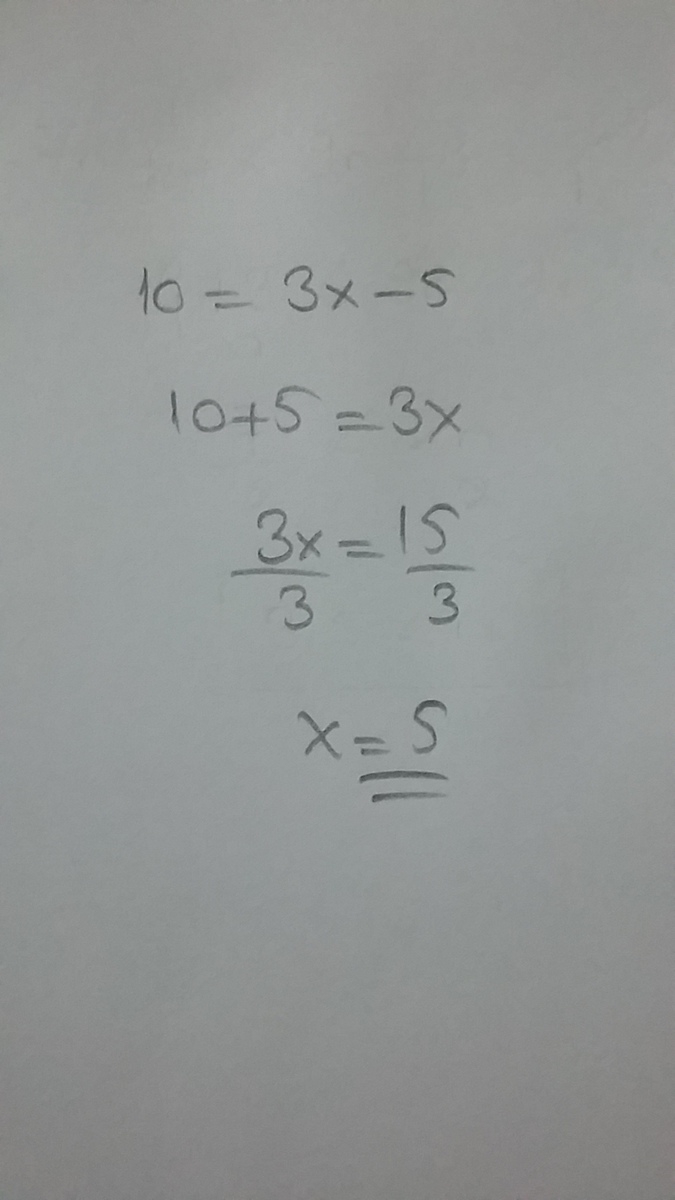 10 = 3x - 5
10 + 5 = 3x
3x/3 = 15/3
x = 5